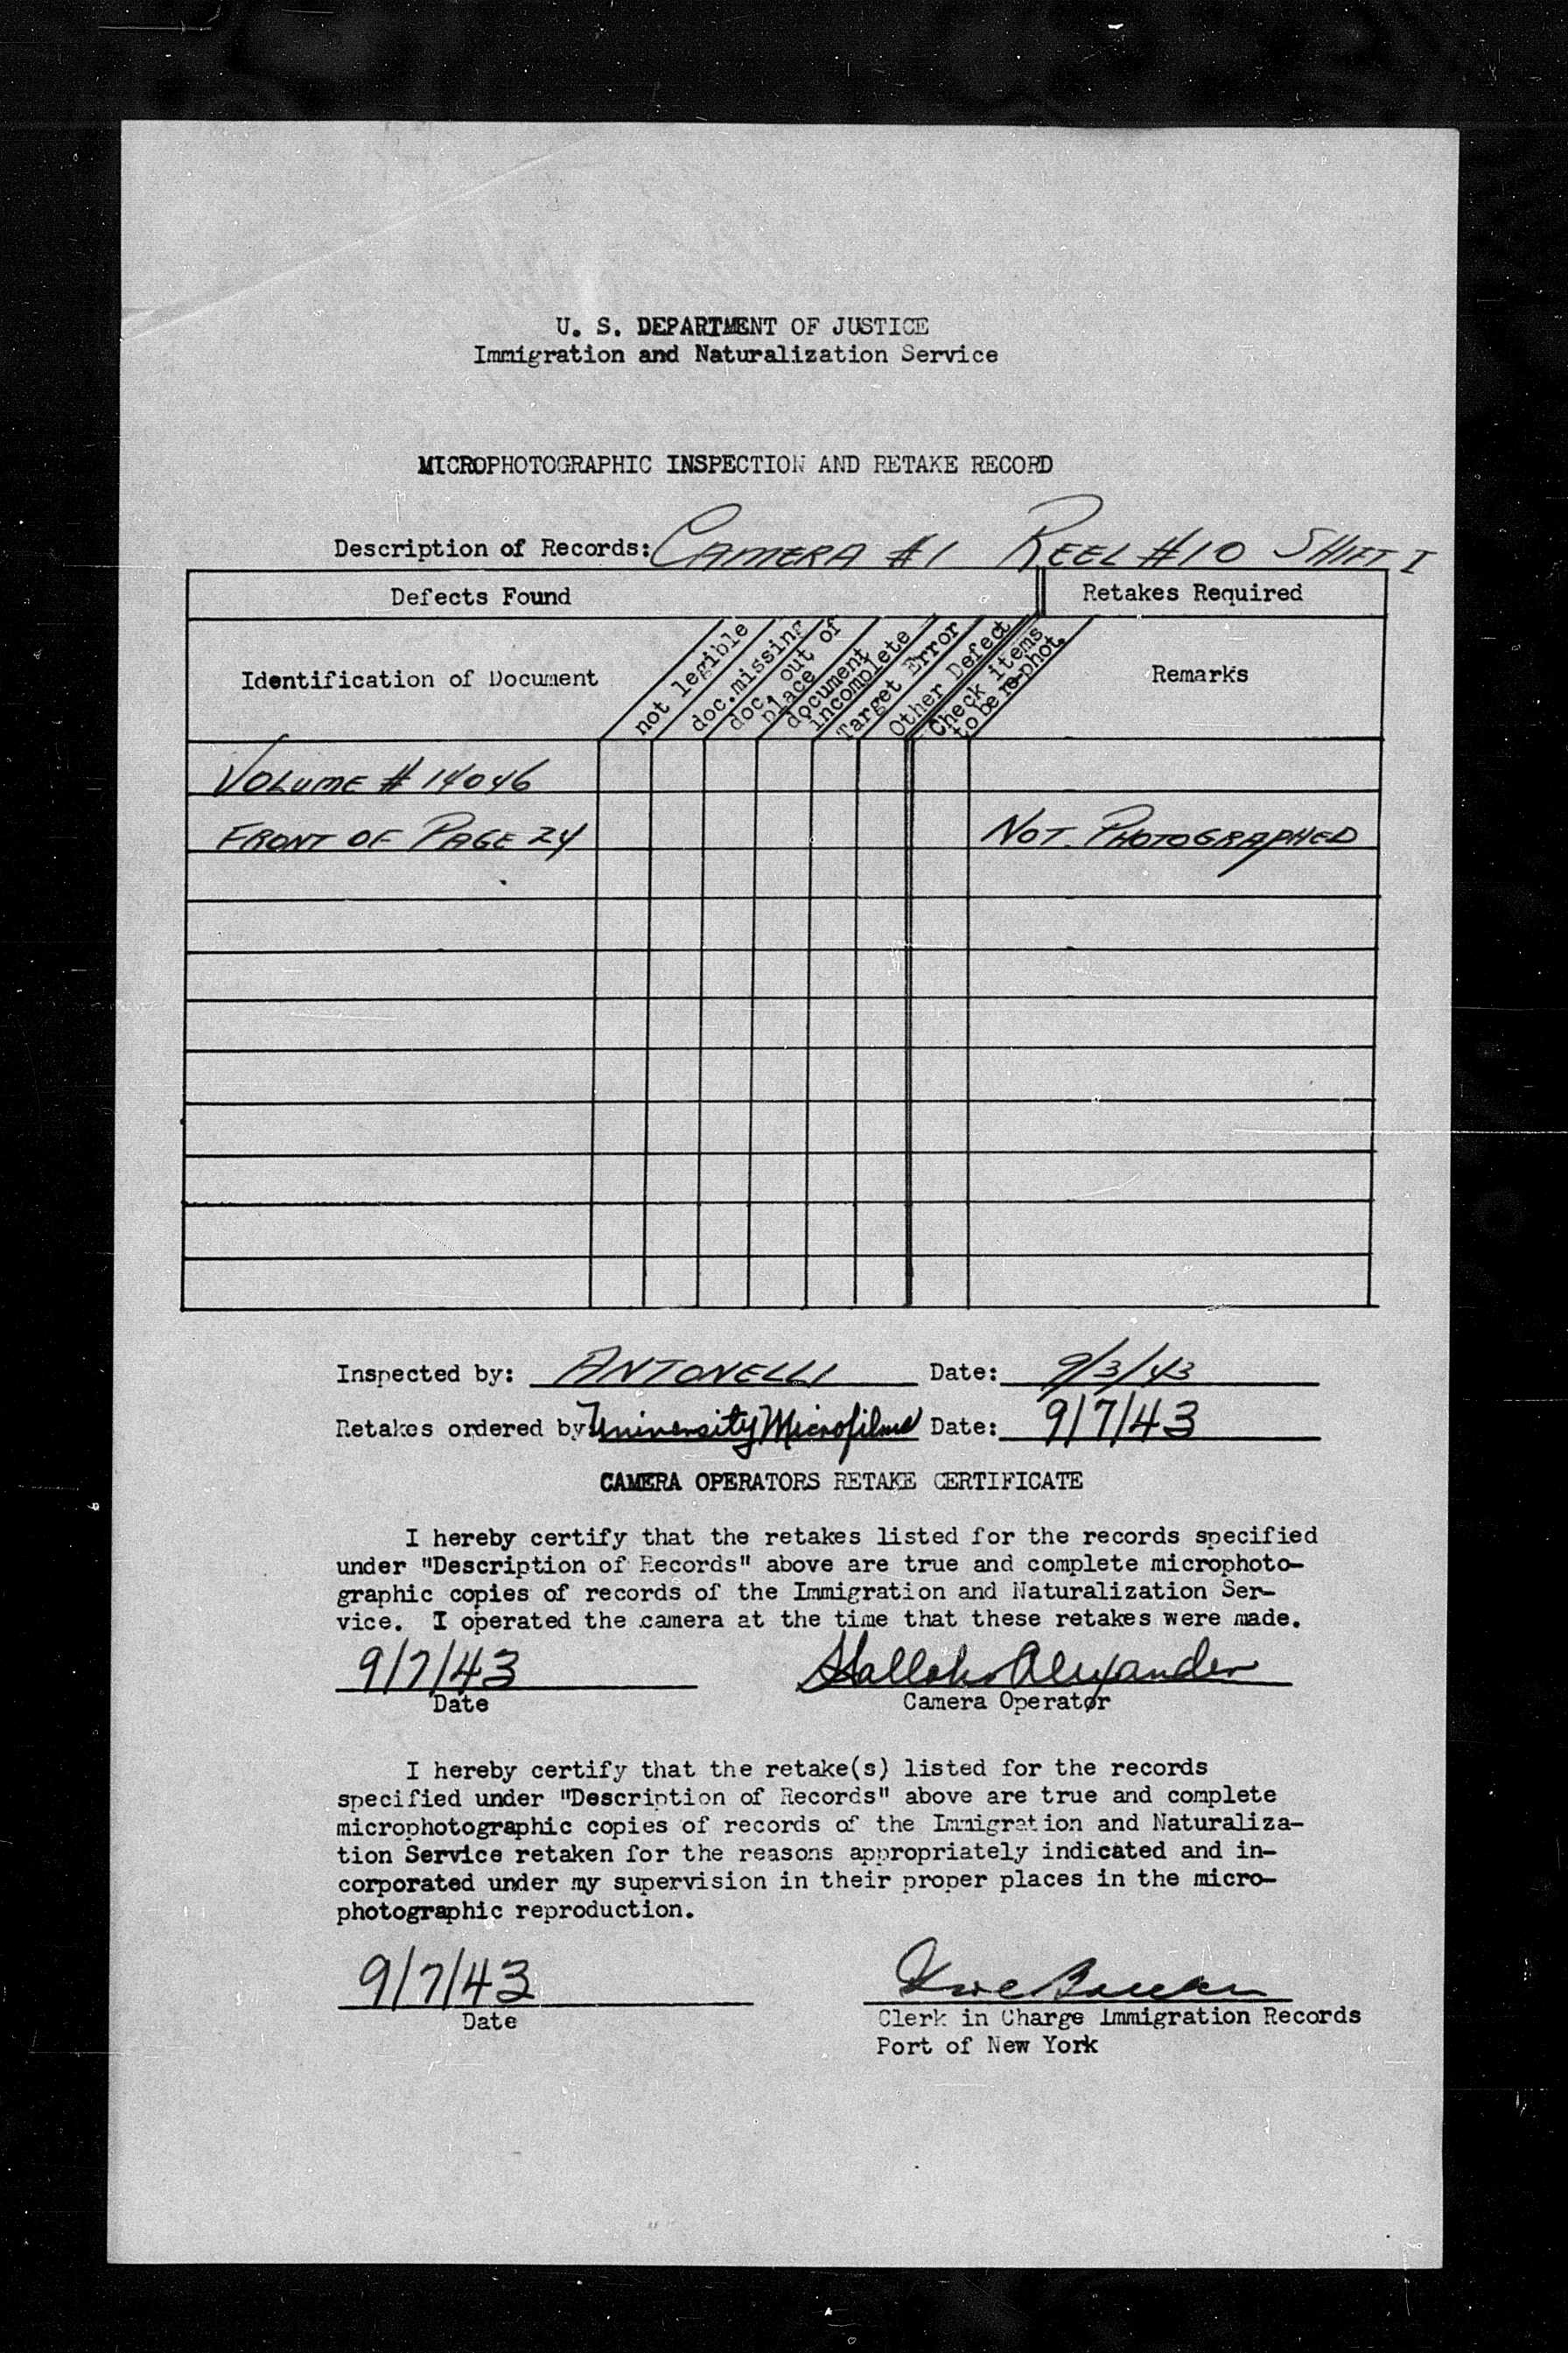 U. S. DEPARTMENT OF JUSTICE
Immigration and Naturalization Service
MICROPHOTOGRAPHIC INSPECTION AND RETAKE RECORD
Description of Records: CAMERA #1 REEL #10 SHIFT I
Defects Found
Retakes Required
Identification of Document
not legible
doc. missing
doc. out of
place
document
incomplete
Target Error
Other Defect
Check items
to be re-phot.
Remarks
VOLUME # 14046
FRONT OF PAGE 24 NOT PHOTOGRAPHED
Inspected by: ANTONELLI Date: 9/3/43
Retakes ordered by University Microfilms Date: 9/7/43
CAMERA OPERATORS RETAKE CERTIFICATE
I hereby certify that the retakes listed for the records specified
under "Description of Records" above are true and complete microphoto-
graphic copies of records of the Immigration and Naturalization Ser-
vice. I operated the camera at the time that these retakes were made.
9/7/43 Alexander
Date Camera Operator
I hereby certify that the retake(s) listed for the records
specified under "Description of Records" above are true and complete
microphotographic copies of records of the Immigration and Naturaliza-
tion Service retaken for the reasons appropriately indicated and in-
corporated under my supervision in their proper places in the micro-
photographic reproduction.
9/7/43
Date
Clerk in Charge Immigration Records
Port of New York